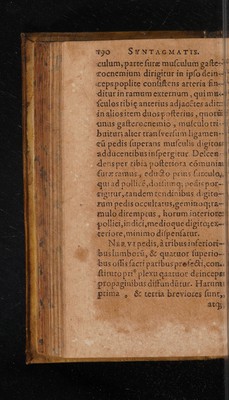 190 SYNTAGMATIS.
culum, parte suræ musculum gaste-
rocnemium dirigitur in ipso dein-
ceps poplite consistens arteria fin-
ditur in ramum externum, qui mu-
sculos tibiæ anterius adjacētes adit:
in alios item duos posterius, quorū
unus gasterocnemio, musculo tri-
buitur: alter transversum ligamen-
tū pedis superans musculis digitos
adducentibus inspergitur. Descen-
dens per tibia posteriora communis
suræ ramus, educto prius surculo,
qui ad pollicē, dorsumq; pedis por-
rigitur, tandem tendinibus digito-
rum pedis occultatus, geminoq; ra-
mulo diremptus, horum interiore
pollici, indici, medioque digito; ex-
teriore, minimo dispensatur.
NERVI pedis, à tribus inferiori-
bus lumborū, & quatuor superio-
bus ossis sacri paribus profecti, con-
stituto prius plexu quatuor deinceps
propaginibus diffundūtur. Harum
prima, & tertia breviores sunt,
atq;